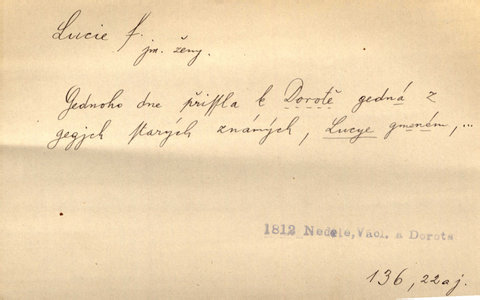 Lucie f.
jm. ženy.
Gednoho dne přissla k Dorotě gedná z
gegjch starých známých, Lucye gmeném, ...
1812 Neděle, Václ. a Dorota
136, 22 aj.